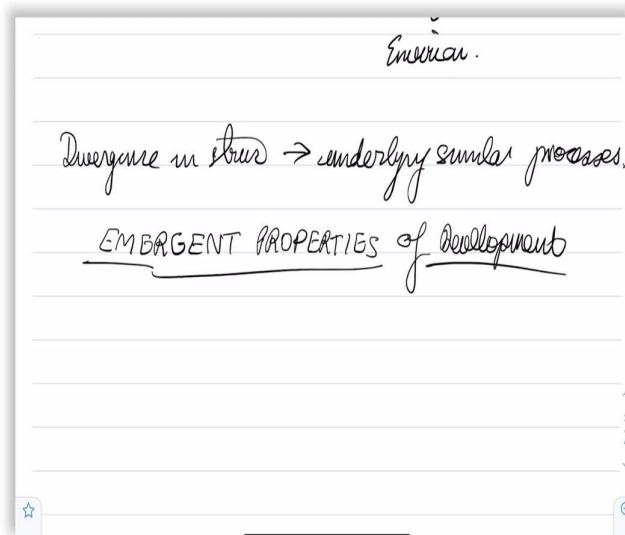 Divergence in struc → underlying similar processes.
EMERGENT PROPERTIES of Development